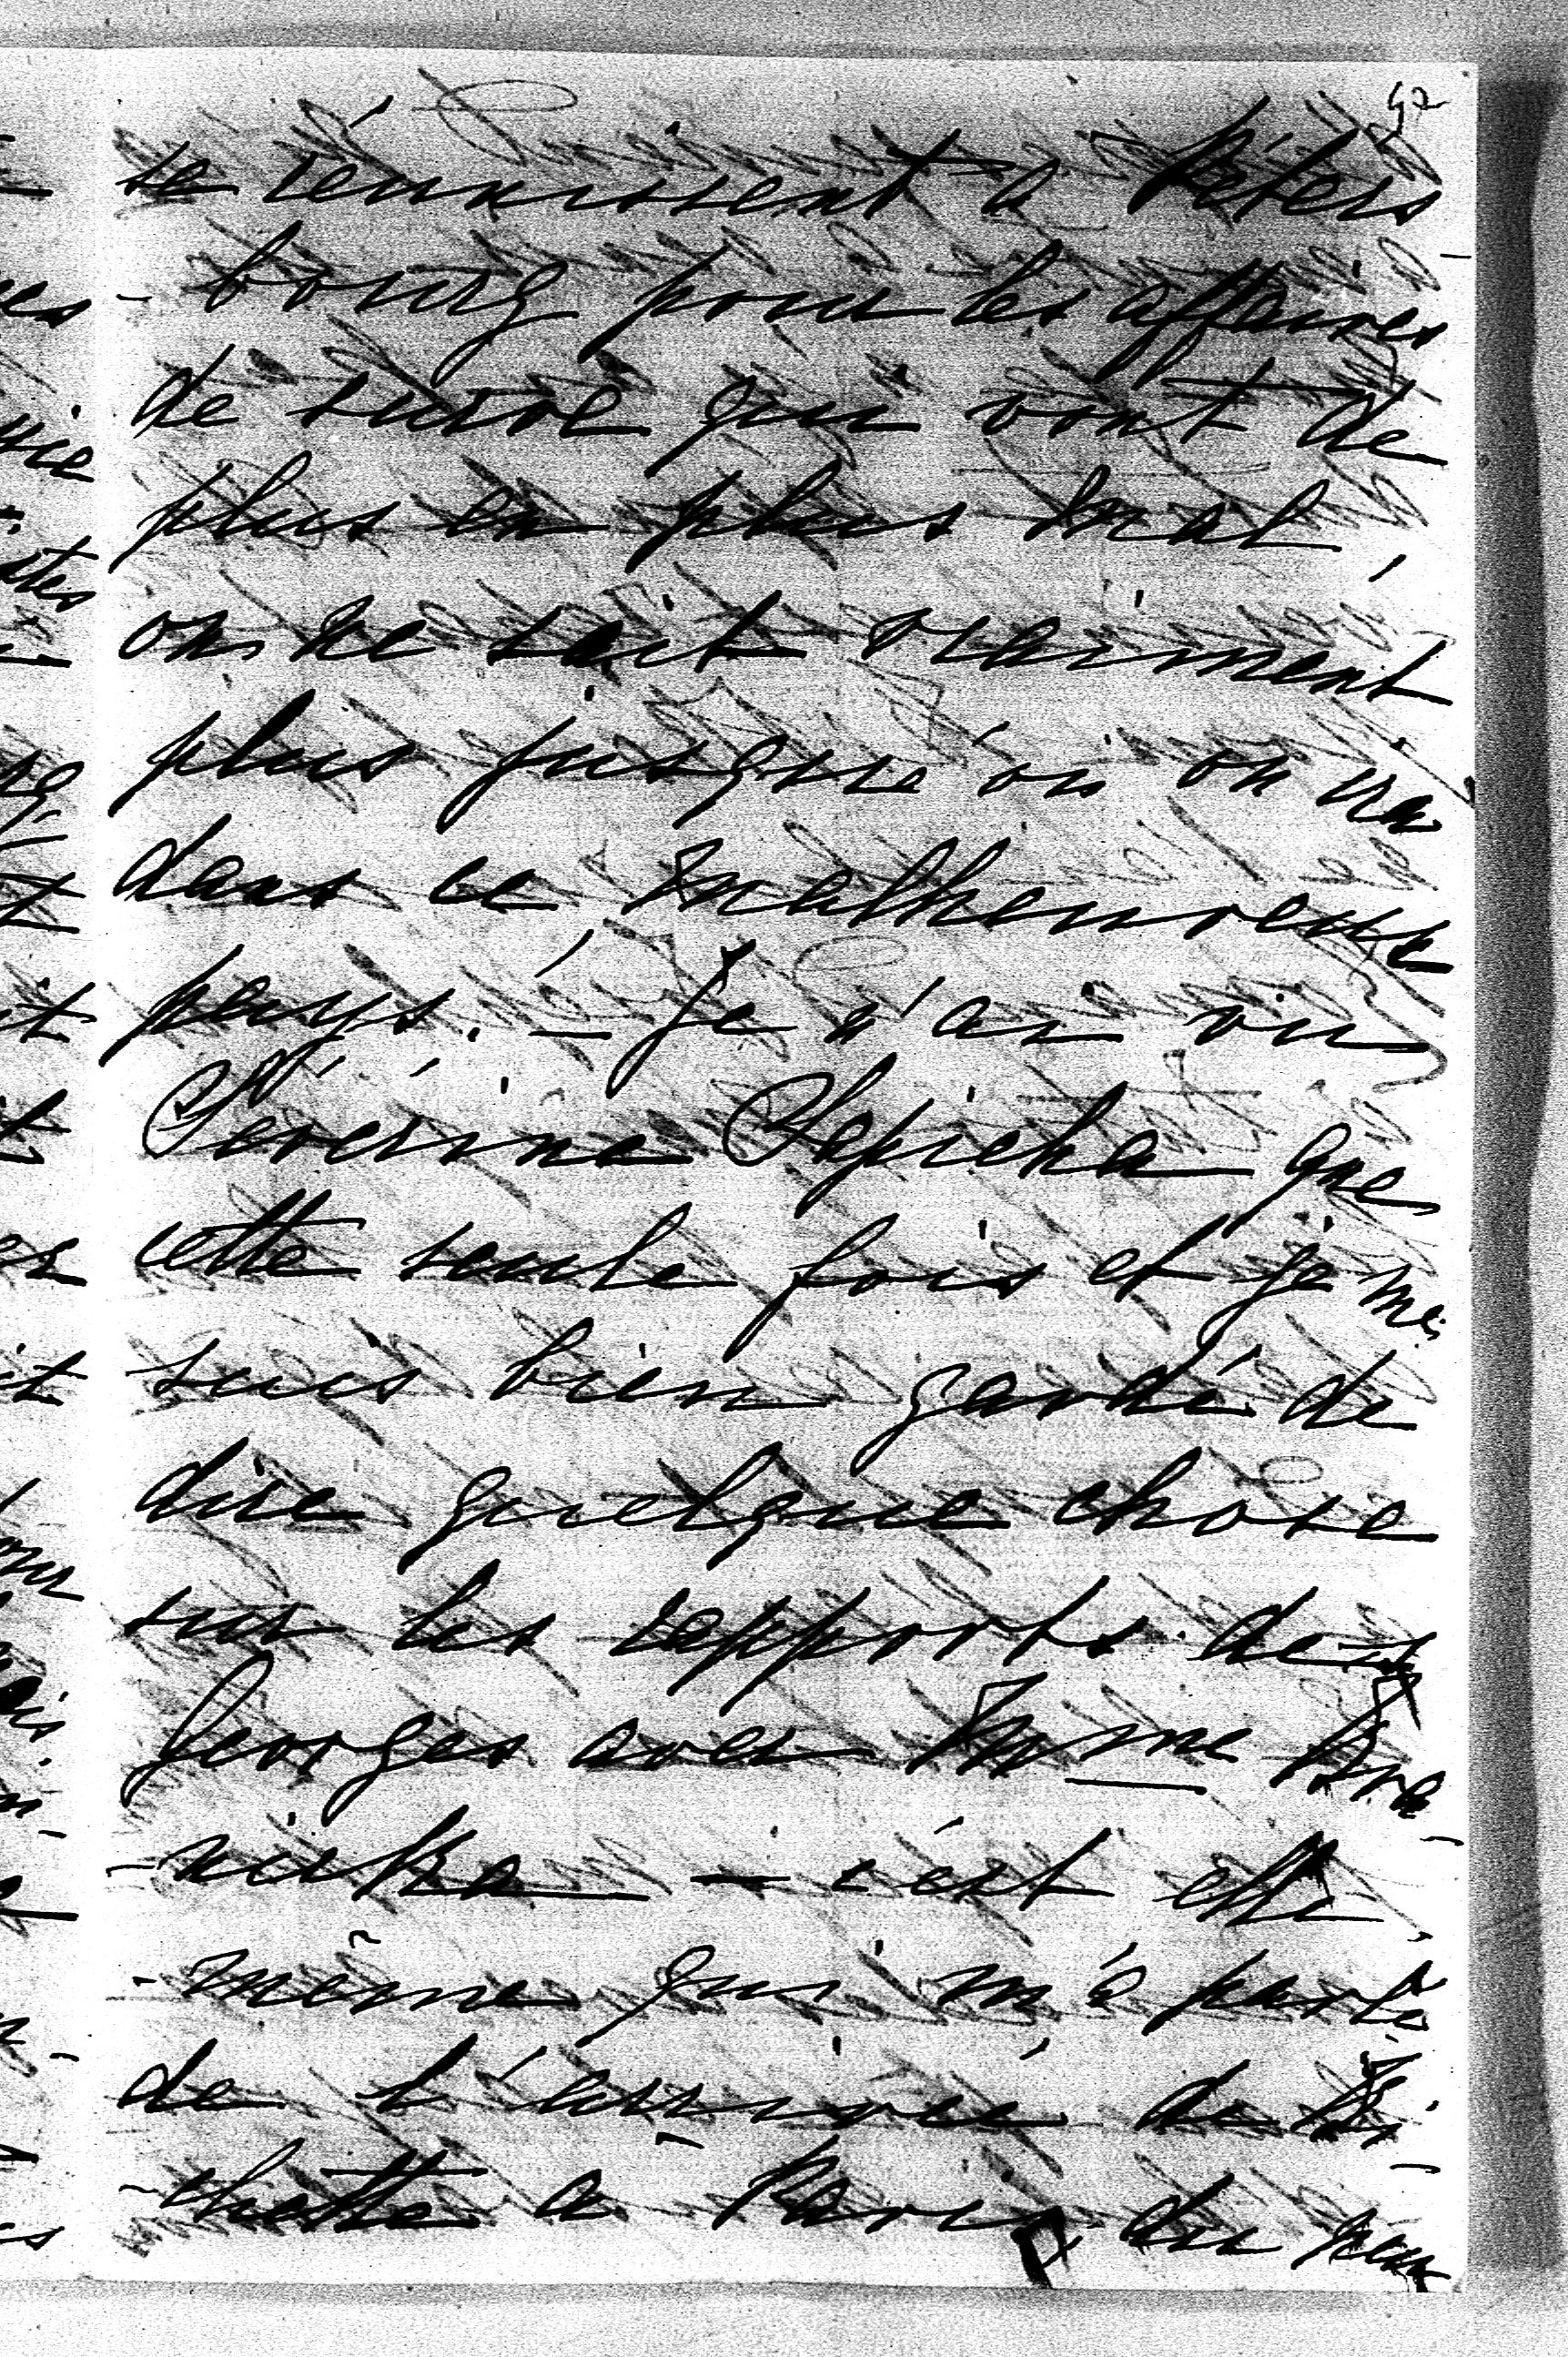 92
se réunissent à Péters-
-bourg pour les affaires
de sucre qui vont de
plus en plus mal,
on ne sait vraiment
plus jusque'où on va
dans ce malheureux
pays. — Je n'ai vu
Séverine Sapieha que
cette seule fois et je me
suis bien gardé de
dire quelque chose
sur les rapports de
Georges avec Mme Bra-
-nicka — c'est elle
-même qui m'a parlé
de l'arrivée de Bi-
-chette à Paris, du